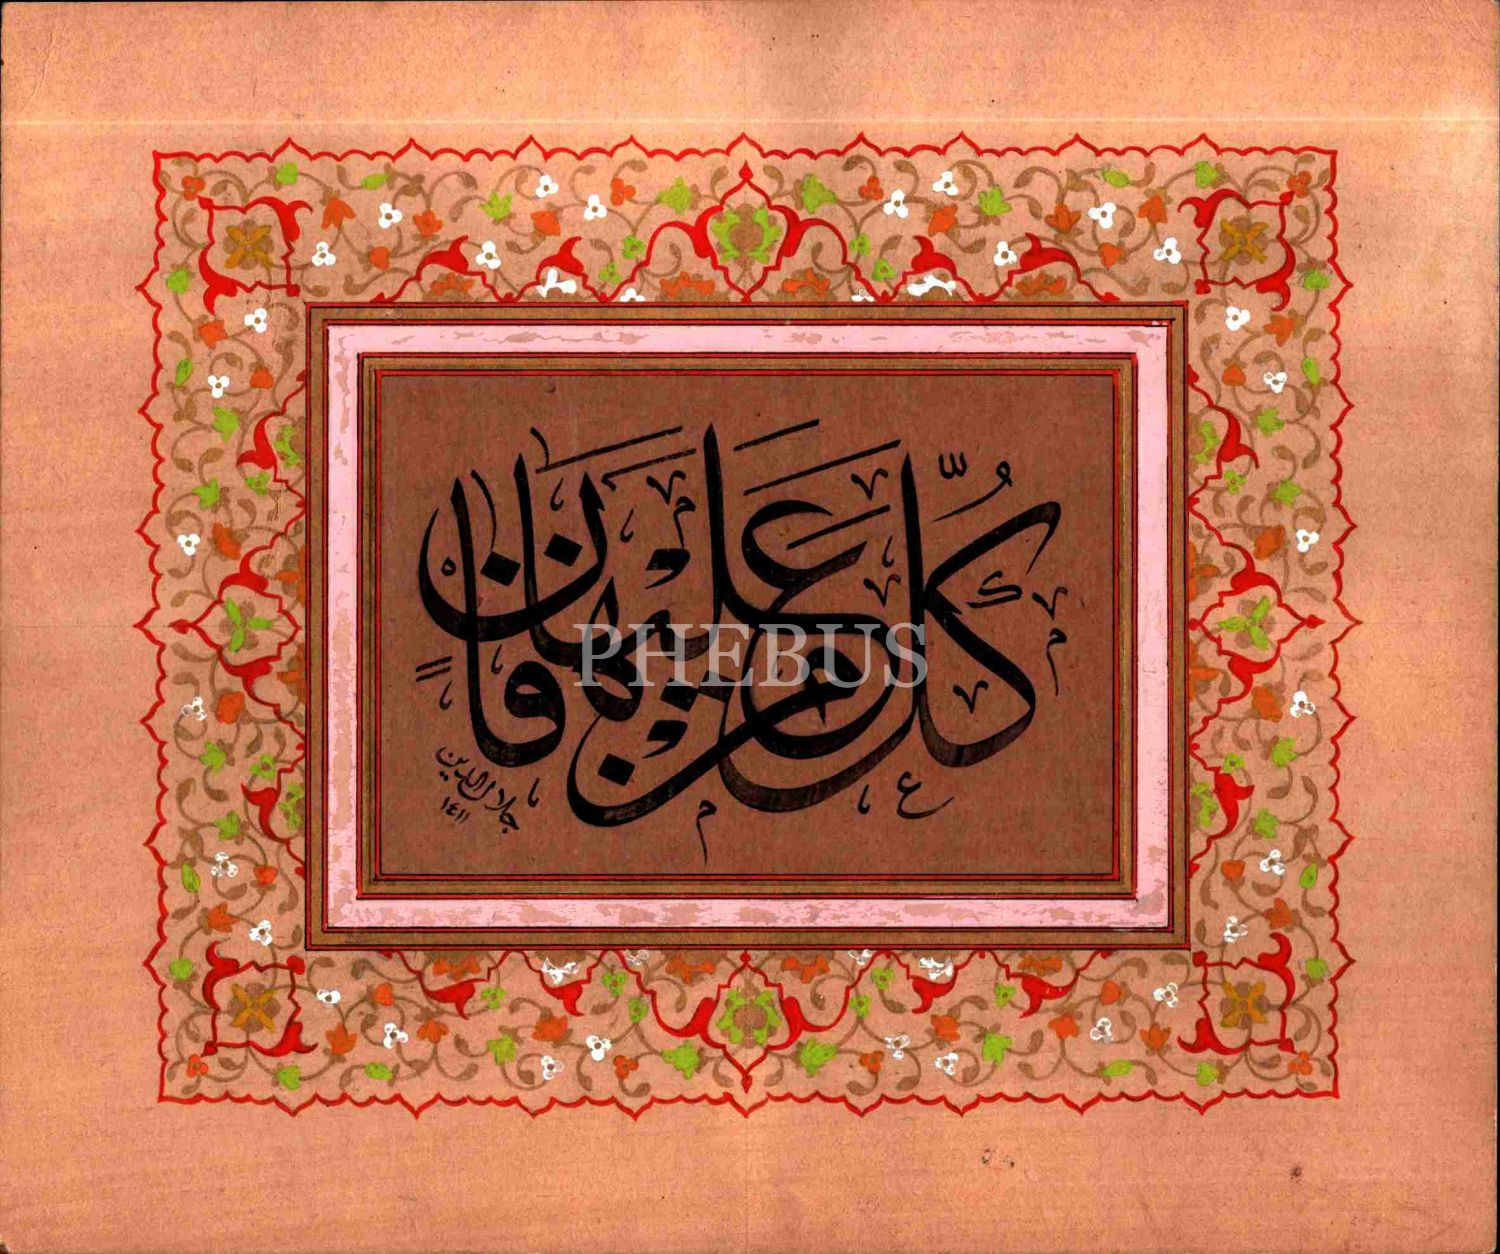 كُلُّ مَنْ عَلَيْهَا فَانٍ
جلال الدين
١٤١١
PHEBUS